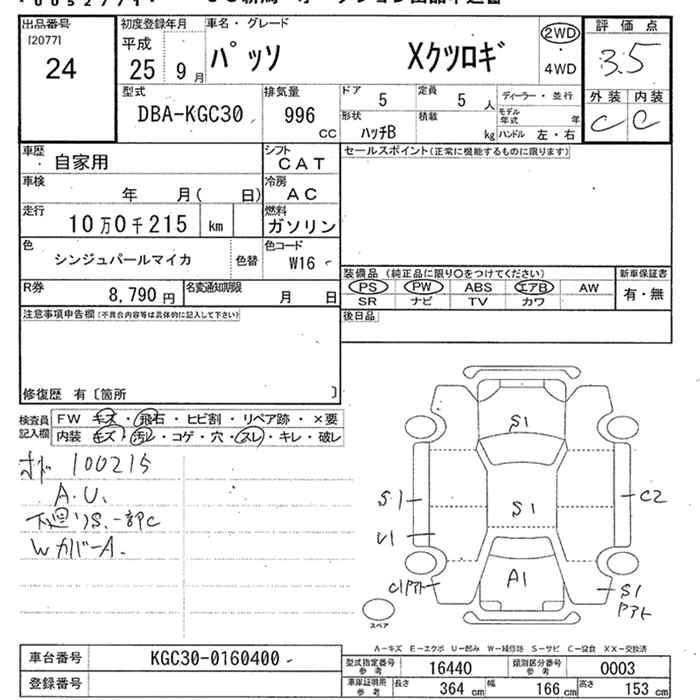 出品番号
[2077]
24
初度登録年月
平成
25 9 月
車名・グレード
パッソ Xクツロギ
2WD
・
4WD
評価点
3.5
外装 内装
C C
型式
DBA-KGC30
排気量
996
cc
ドア
5
定員
5 人
ディーラー・並行
形状
ハッチB
積載
kg
モデル年式 年
ハンドル 左・右
車歴
自家用
シフト
CAT
車検
年 月( 日)
冷房
AC
走行
10万0千215 km
燃料
ガソリン
色
シンジュパールマイカ
色替
色コード
W16
R券
8,790 円
名変通知期限
月 日
セールスポイント(正常に機能するものに限ります)
装備品(純正品に限り○をつけてください)
新車保証書
PS PW ABS エアB AW
SR ナビ TV カワ
有・無
後日品
注意事項申告欄(不具合内容等は具体的に記入して下さい)
修復歴 有〔箇所 〕
検査員
記入欄
FW キズ・飛石・ヒビ割・リペア跡・×要
内装 キズ・汚レ・コゲ・穴・スレ・キレ・破レ
オド 100215
A.U.
下廻りS.一部C
WカバーA.
S1
S1
S1
C2
U1
A1
C1アト
S1
Pアト
スペア
A-キズ E-エクボ U-凹み W-補修跡 S-サビ C-腐食 XX-交換済
車台番号
KGC30-0160400
登録番号
型式指定番号
参考
16440
類別区分番号
参考
0003
車庫証明用
参考
長さ
364 cm
幅
166 cm
高さ
153 cm